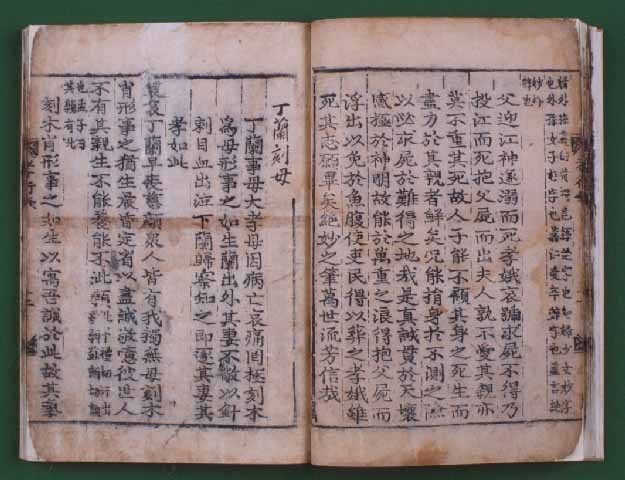 也外孫女子也好字也齏臼受辛辤字也蓋言絶
妙好
辤也
父迎江神遂溺而死孝娥哀踊求屍不得乃
投江而死抱父屍而出夫人孰不愛其親亦
莫不重其死故人子能不顧其身之死生而
盡力於其親者鮮矣況能捐身於不測之淵
以必求屍於難得之地我是真誠貫於天壤
感極於神明故能於萬重之浪得抱父屍而
浮出以免於魚腹使吏民得以葬之孝娥雖
死其志願畢矣絶妙之筆萬世流芳信哉
丁蘭刻母
丁蘭事母大孝母因病亡哀痛罔極刻木
為母形事之如生蘭出外其妻不敬以針
刺目血出泣下蘭歸察知之即逐其妻其
孝如此
哀哀丁蘭早喪慈顔衆人皆有我獨無母刻木
肖形事之猶生晨昏定省以盡誠敬噫彼世人
不有其親生不能養能不泚顙
也孟子曰
其顙有泚
刻木肖形事之如生以寓吾誠於此故其妻